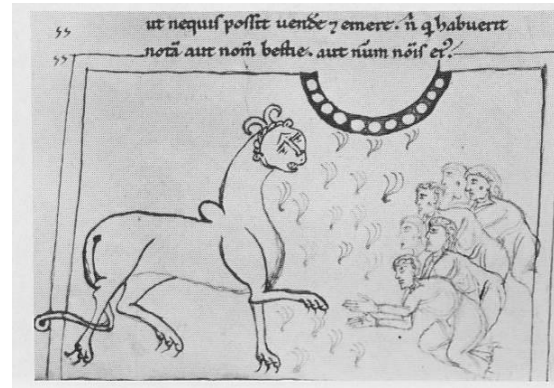 ut nequis possit uendẽ ⁊ emere. ñ q̇ habuerit
notã aut nom̃ bestie. aut nũm nõis eiꝰ.